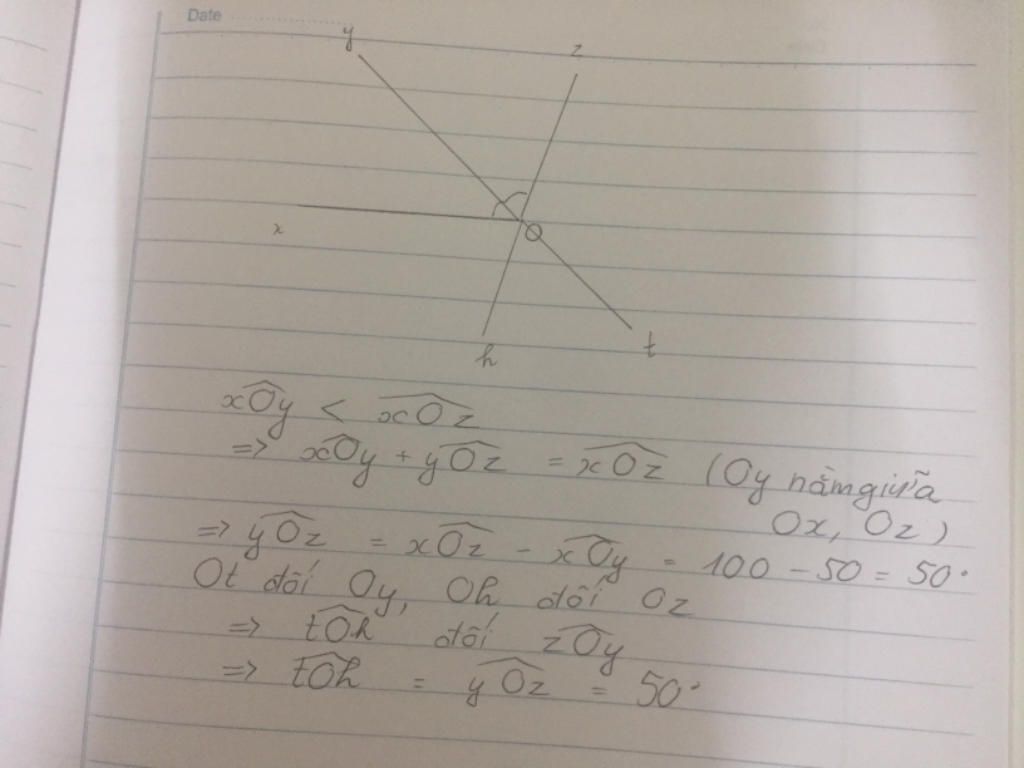 Date
y
z
x
O
h
t
xÔy < xÔz
=> xÔy + yÔz = xÔz (Oy nằm giữa
Ox, Oz)
=> yÔz = xÔz - xÔy = 100 - 50 = 50°
Ot đối Oy, Oh đối Oz
=> tÔh đối zÔy
=> tÔh = yÔz = 50°